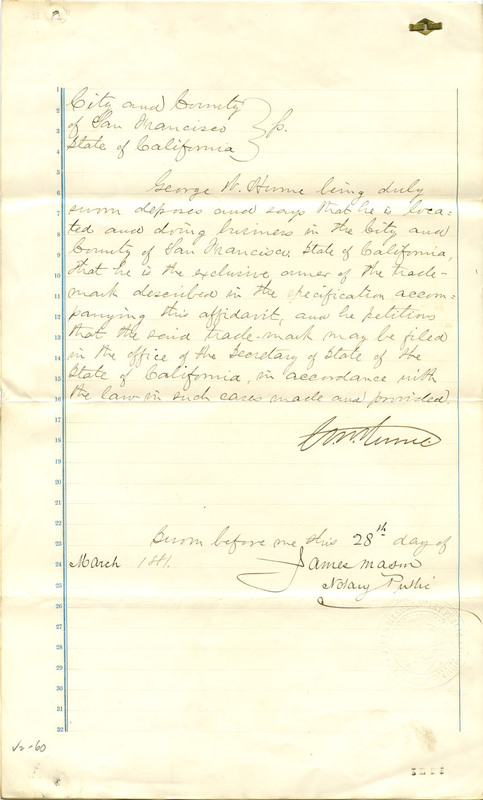 City and County
of San Francisco } ss.
State of California
George W. Hume being duly
sworn deposes and says that he is loca-
ted and doing business in the City and
County of San Francisco, State of California,
that he is the exclusive owner of the trade-
mark described in the specification accom-
panying this affidavit, and he petitions
that the said trade-mark may be filed
in the office of the Secretary of State of the
State of California, in accordance with
the law in such cases made and provided.
G. W. Hume
Sworn before me this 28th day of
March 1881.
James Mason
Notary Public
1
2
3
4
5
6
7
8
9
10
11
12
13
14
15
16
17
18
19
20
21
22
23
24
25
26
27
28
29
30
31
32